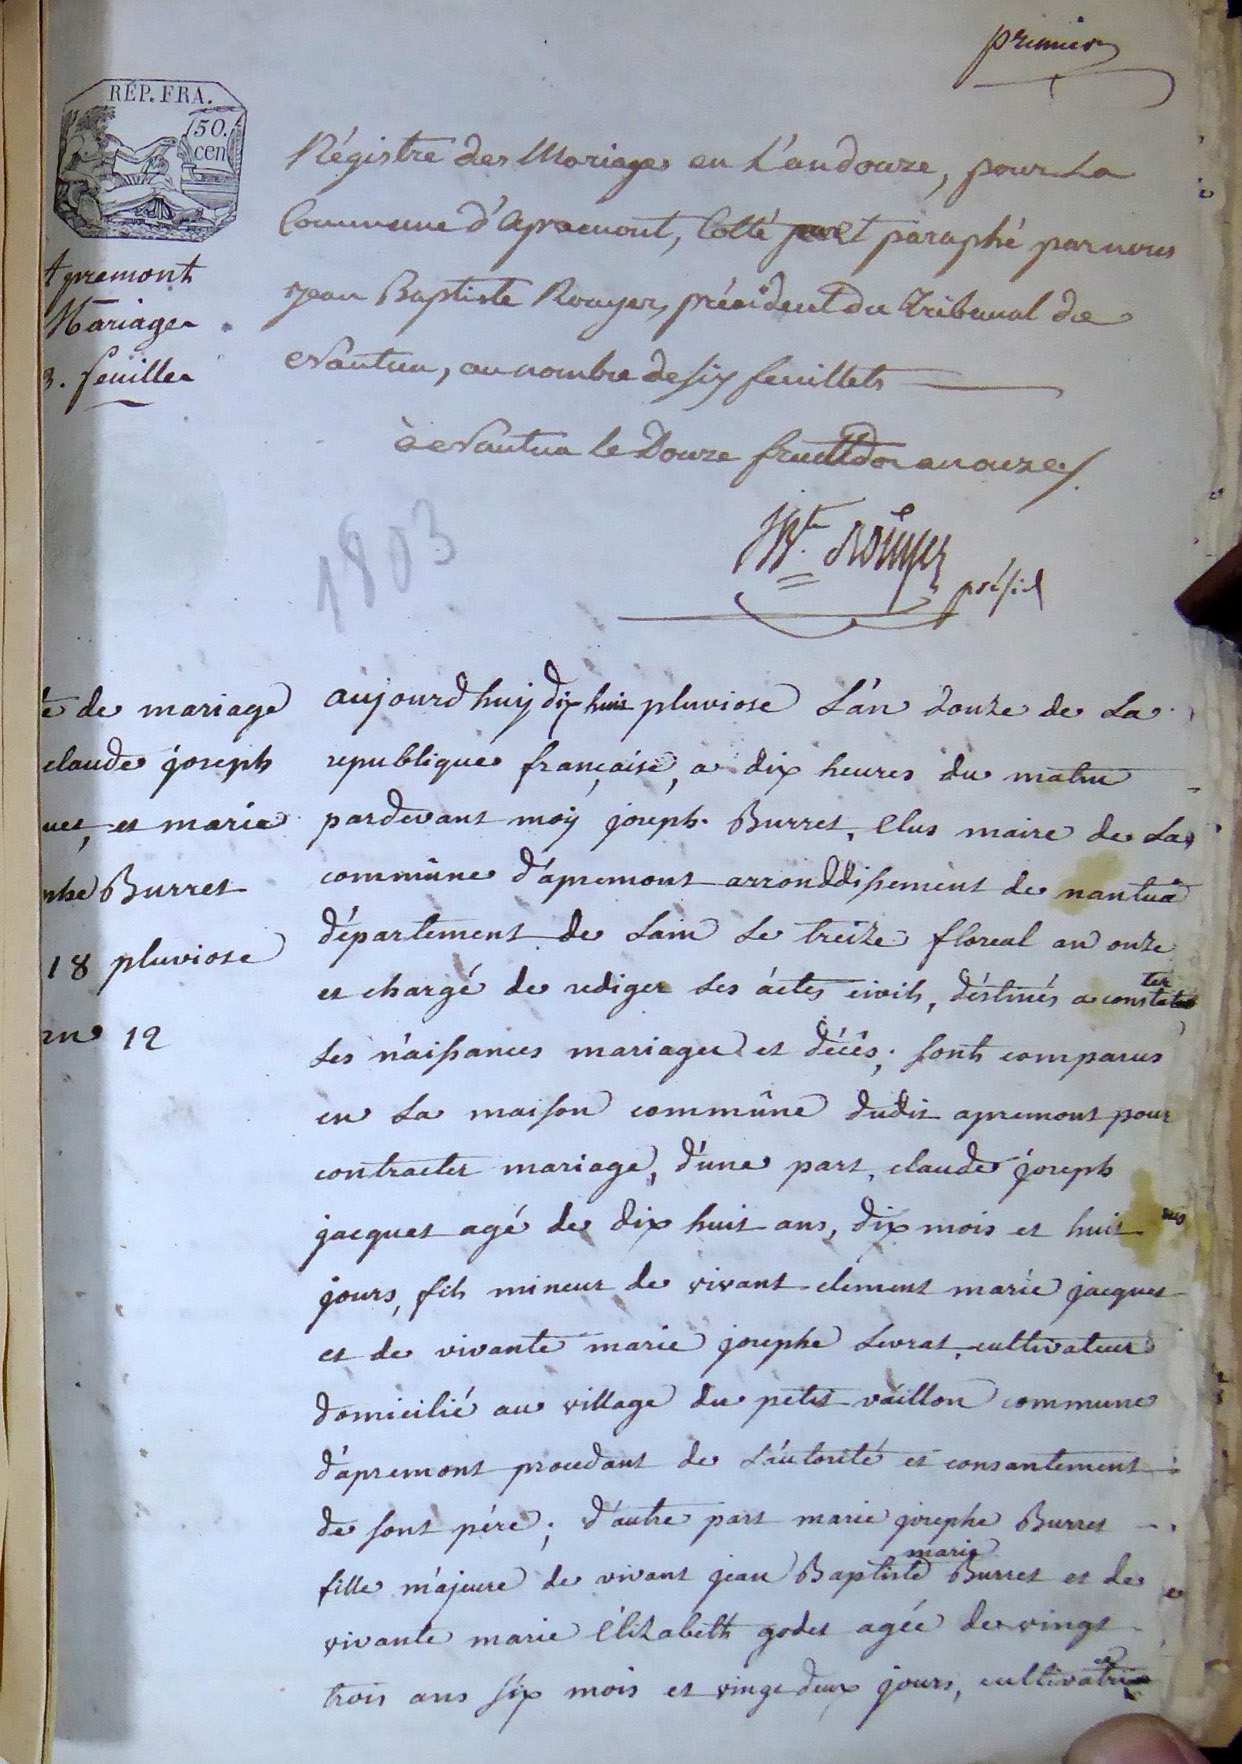 premier
RÉP. FRA.
50.
cen
Régistre des Mariages en L'an douze, pour La
Commune d'Apremont, Cotté et paraphé par nous
Jean Baptiste Rouyer, président du Tribunal de
Nantua, au nombre de six feuillets
à Nantua le Douze fructidor an onze
JBte. Rouyer
présid
Apremont
Mariage
3. feuilles
1803
te de mariage
claude joseph
uet, et marie
phe Burret
18 pluviose
an 12
aujourdhuy dix huit pluviose L'an douze de La
republique française, a dix heures du matin
pardevant moy joseph Burret, Elus maire de La
commûne d'apremont arronddissement de nantua
département de Lain Le treize floreal an onze
et chargé de rediger Les áctes civils, déstinés a constater
Les n'aissances mariages et décès, sont comparus
en La maison commûne dudit apremont pour
contracter mariage, d'une part, claude joseph
jacquet agé de dix huit ans, dix mois et huit
jours, fils mineur de vivant clement marie jacquet
et de vivante marie josephe Levrat, cultivateur
domicilié au village du petit vaillon commune
d'apremont procedant de L'autorité et consantement
de sont pére; d'autre part marie josephe Burret
fille m'ajeure de vivant jean Baptiste marie Burret et de
vivante marie Elizabeth godet agée de vingt
trois ans six mois et vingt deux jours, cultivatrice